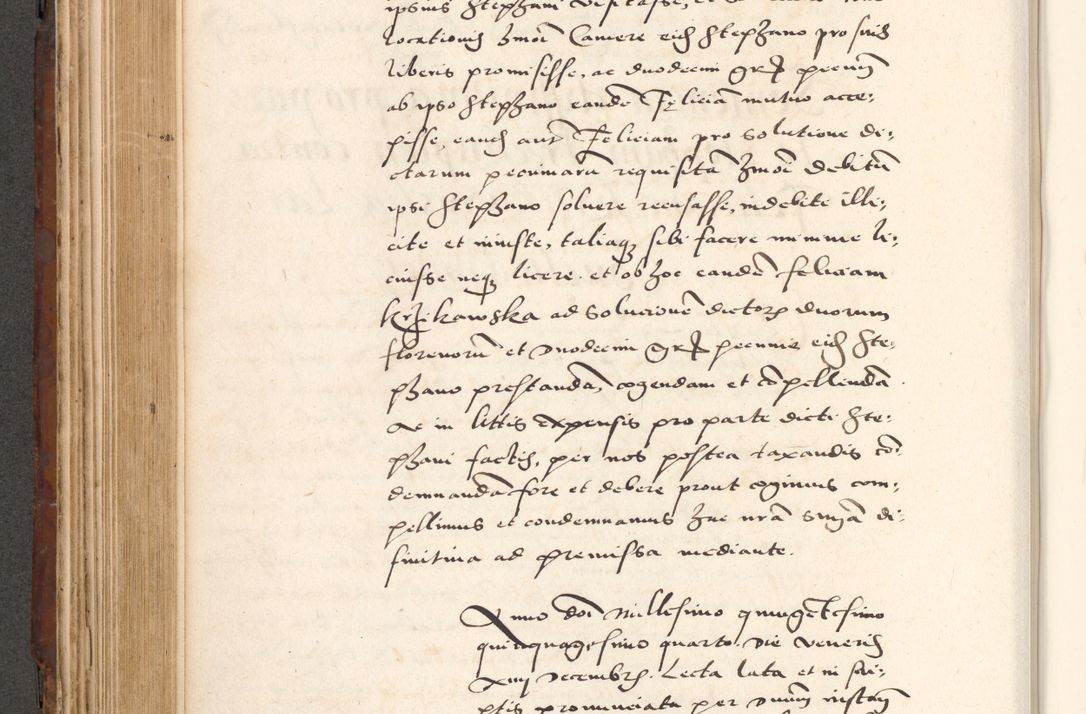 ipsius Stephani
locationis hmoi Camere eidem Stephano pro suis
liberis promisisse, ac duodecim gr pecuniis
ab ipso Stephano eandē Feliciā mutuo acce-
pisse, eandē autē Feliciam pro solutione di-
ctarum pecuniarū requisitā hmoi debitū
ipsi Stephano solvere recusasse, indebite illi-
cite et iniuste, taliaq sibi facere minime li-
cuisse neq licere. et ob hoc eandē feliciam
krzikawska ad solucionē dictorz duorum
florenorū et duodecim gr pecunie eidem Ste-
phano prestandā, cogendam et cōpellendā
Ac in littis expensis pro parte dicti Ste-
phani factis, per nos postea taxandis cō-
demnandā fore et debere prout cogimus com-
pellimus et condemnamus hac nrā smā di-
finitiva ad premissa mediante.
Anno doi Millesimo quingētesimo
quinquagesimo quarto. die veneris
xiiij Decembrs. Lecta lata et in scri-
ptis pronunciata per Dnūm